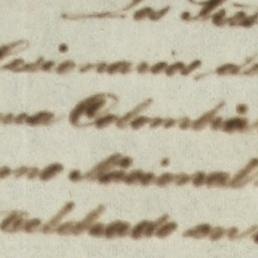 Los Tres
lesionarios de
ua Colombia
no Nacional
celebrado en